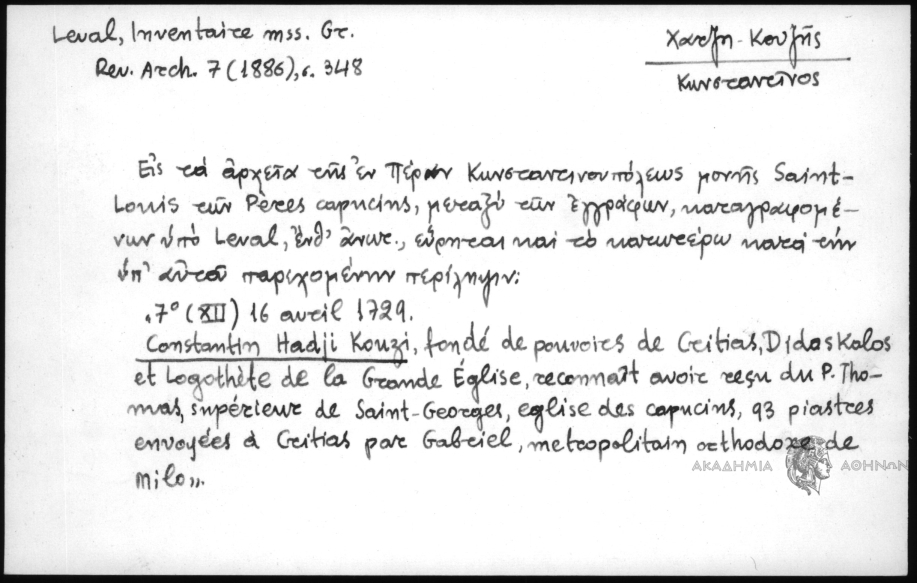 Leval, Inventaire mss. Gr.
Rev. Arch. 7 (1886), σ. 348
Χατζη-Κουζῆς
Κωνσταντῖνος
Εἰς τὰ ἀρχεῖα τῆς ἐν Πέραν Κωνσταντινουπόλεως μονῆς Saint-
Louis τῶν Pères capucins, μεταξὺ τῶν ἐγγράφων, καταγραφομέ-
νων ὑπὸ Leval, ἔνθ' ἀνωτ., εὕρηται καὶ τὸ κατωτέρω κατὰ τὴν
ὑπ' αὐτοῦ παρεχομένην περίληψιν:
"7° (XII) 16 avril 1729.
Constantin Hadji Kouzi, fondé de pouvoirs de Critias, Didaskalos
et Logothète de la Grande Église, reconnaît avoir reçu du P. Tho-
mas, supérieur de Saint-Georges, eglise des capucins, 93 piastres
envoyées à Critias par Gabriel, metropolitain orthodoxe de
Milo».
ΑΚΑΔΗΜΙΑ ΑΘΗΝΩΝ